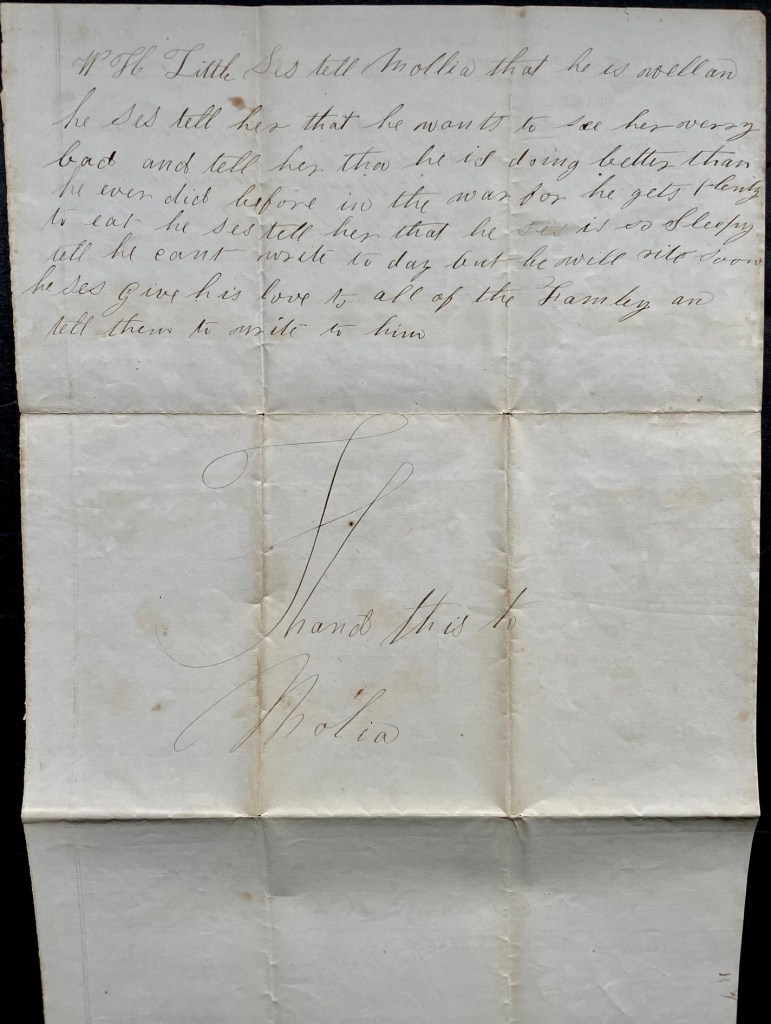 W H Little Ses tell Mollia that he is well an
he ses tell her that he wants to see her verry
bad and tell her tha he is doing better than
he ever did before in the war for he gets plenty
to eat he ses tell her that he ses is so sleepy
tell he cant write to day but he will rite soon
he ses give his love to all of the Famley an
tell them to write to him
hand this to
Molia